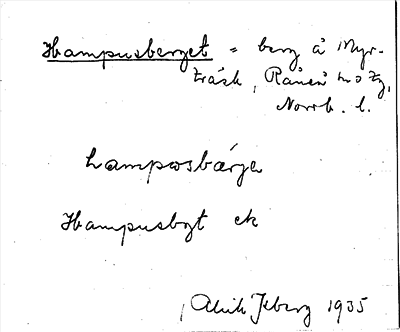 Hampusberget = berg å Myr-
träsk, Råneå
Norrb. l.
hamposbærje
Hampusbgt ek
Alrik Iberg 1935